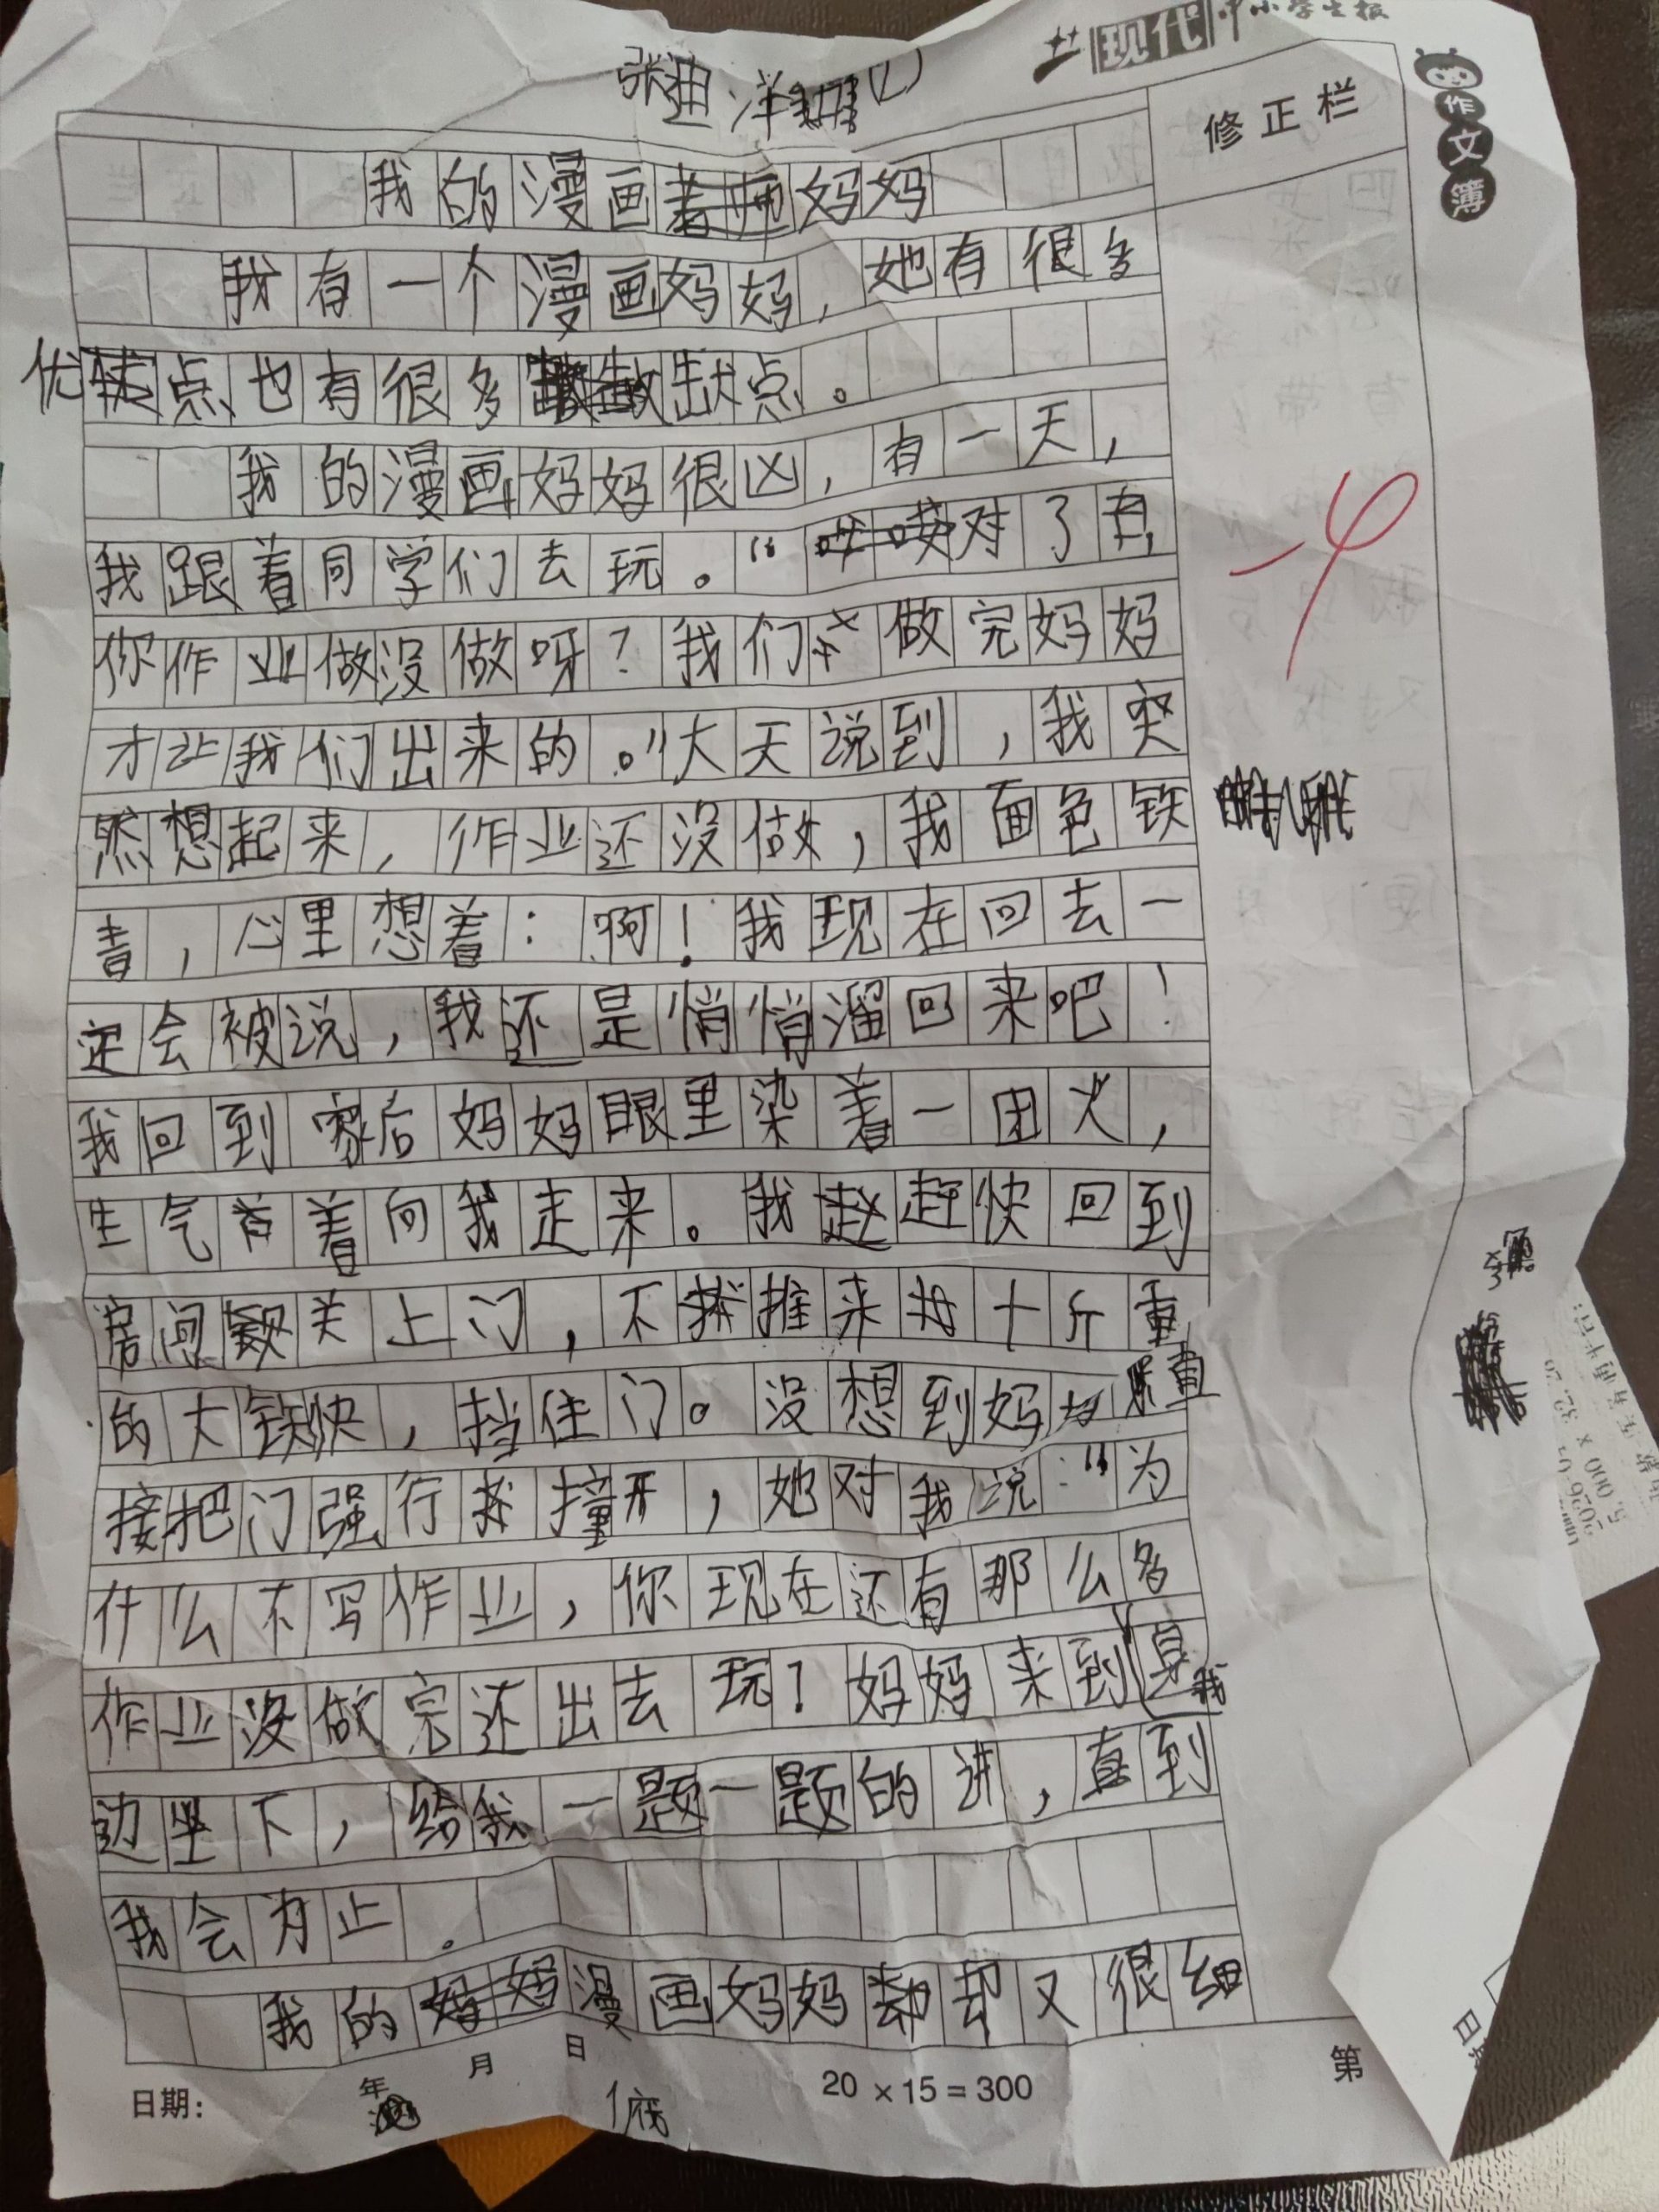 现代中小学生报
张迪洋
修正栏
作文簿
我的漫画妈妈
我有一个漫画妈妈，她有很多
优点也有很多缺点。
我的漫画妈妈很凶，有一天，
我跟着同学们去玩。“对了
你作业做没做呀？我们 做完妈妈
才让我们出来的。”大天说到，我突
然想起来，作业还没做，我面色铁
青，心里想着：啊！我现在回去一
定会被说，我还是悄悄溜回来吧！
我回到家后妈妈眼里染着一团火，
生气 着向我走来。我赶快回到
房间 关上门，不 推来 十斤重
的大铁快，挡住门。没想到妈妈 直
接把门强行 撞开，她对我说：“为
什么不写作业，你现在还有那么多
作业没做完还出去玩？妈妈来到我身
边坐下，给我一题一题的讲，直到
我会为止。
我的漫画妈妈却又很细
-4
日期： 年 月 日
20×15=300
第